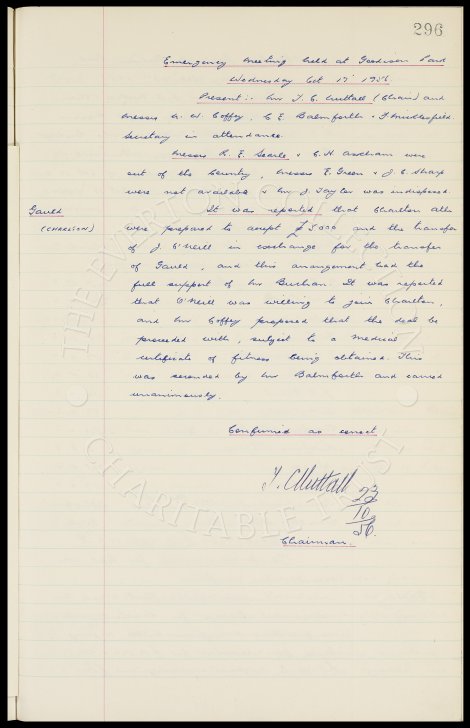 296
Emergency Meeting held at Goodison Park
Wednesday Oct 17' 1956.
Present:- Mr T. C. Nuttall (Chair) and
Messrs N. W. Coffey, C. E. Balmforth & F. Micklesfield.
Secretary in attendance.
Messrs R. E. Searle & C. H. Askham were
out of the Country, Messrs E. Green & J. C. Sharp
were not available & Mr J. Taylor was indisposed.
Gauld
(CHARLTON)
It was reported that Charlton Ath
were prepared to accept £5000 and the transfer
of J. O'Neill in exchange for the transfer
of Gauld, and this arrangement had the
full support of Mr Buchan. It was reported
that O'Neill was willing to join Charlton,
and Mr Coffey proposed that the deal be
proceeded with, subject to a medical
certificate of fitness being obtained. This
was seconded by Mr Balmforth and carried
unanimously.
Confirmed as correct
T. C. Nuttall
23
10
56.
Chairman.
THE EVERTON COLLECTION
CHARITABLE TRUST